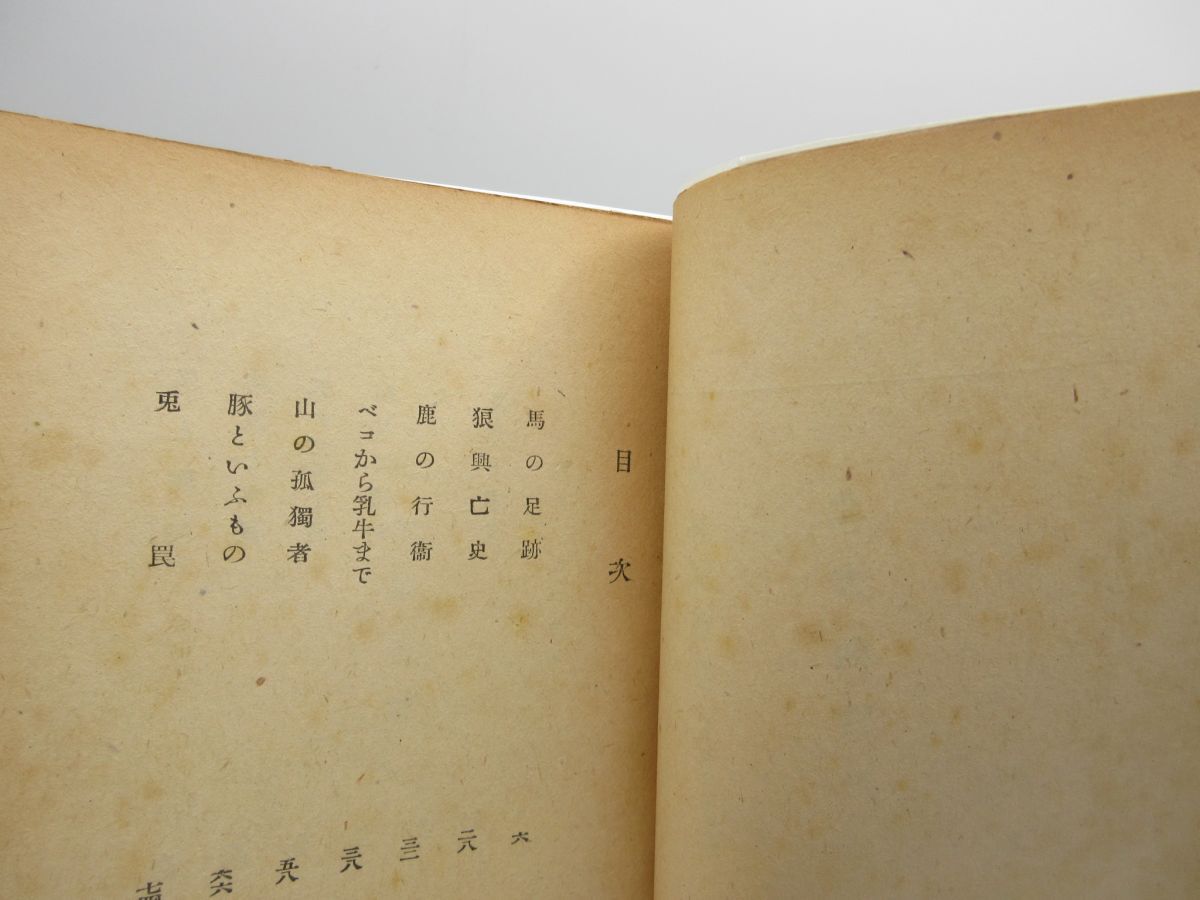 目次
馬の足跡 六
狼興亡史 二八
鹿の行衞 三一
ベコから乳牛まで 三八
山の孤獨者 五八
豚といふもの 六六
兎罠 七四